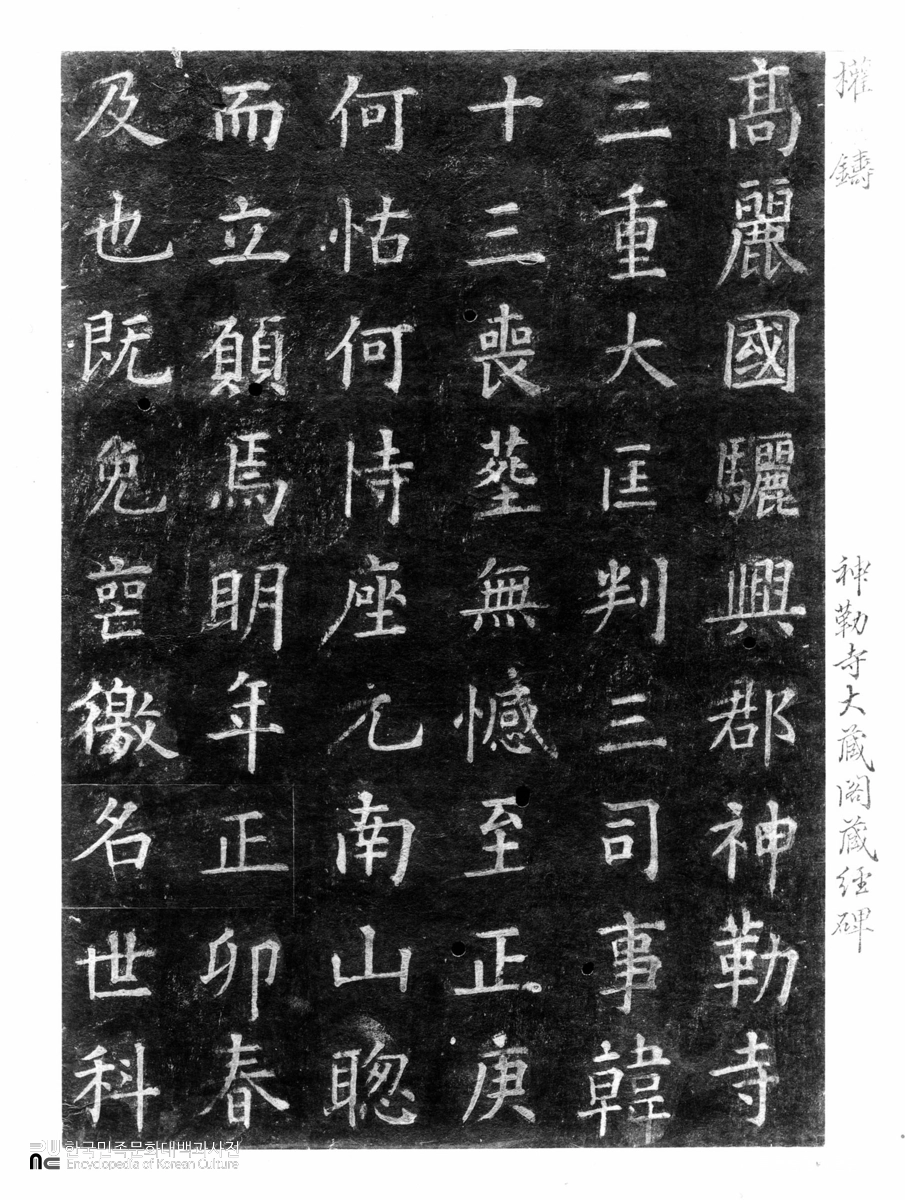 權 鑄
神勒寺大藏閣藏經碑
髙麗國驪興郡神勒寺
三重大匡判三司事韓
十三喪葬無憾至正庚
何怙何恃座元南山聦
而立願焉明年正卯春
及也既免喪徼名世科
한국민족문화대백과사전
Encyclopedia of Korean Culture